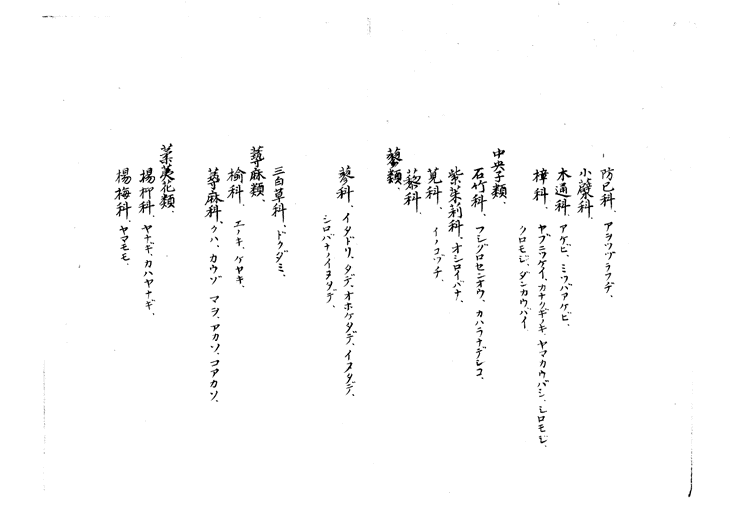 防已科、アヲツヅラフヂ、
小蘗科、
木通科、アケビ、ミツバアケビ、
樟科、ヤブニッケイ、カナクギノキ、ヤマカウバシ、シロモジ、
クロモジ、ダンカウバイ
中央子類、
石竹科、フシグロセンオウ、カハラナデシコ、
紫茉莉科、オシロイバナ、
莧科、イノコヅチ、
藜科、
蓼類、
蓼科、イタドリ、タデ、オホケタデ、イヌタデ、
シロバナノイヌタデ、
三白草科、ドクダミ、
蕁麻類、
楡科、エノキ、ケヤキ、
蕁麻科、クハ、カウゾ、マヲ、アカソ、コアカソ、
葇荑花類、
楊柳科、ヤナギ、カハヤナギ、
楊梅科、ヤマモモ、